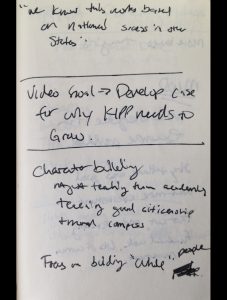 "we know this works based
on national success in other
States".
Video Goal → Develop case
for why KIPP needs to
Grow.
Character building
teaching them academically
teaching good citizenship
moral compass
Focus on building "whole" people